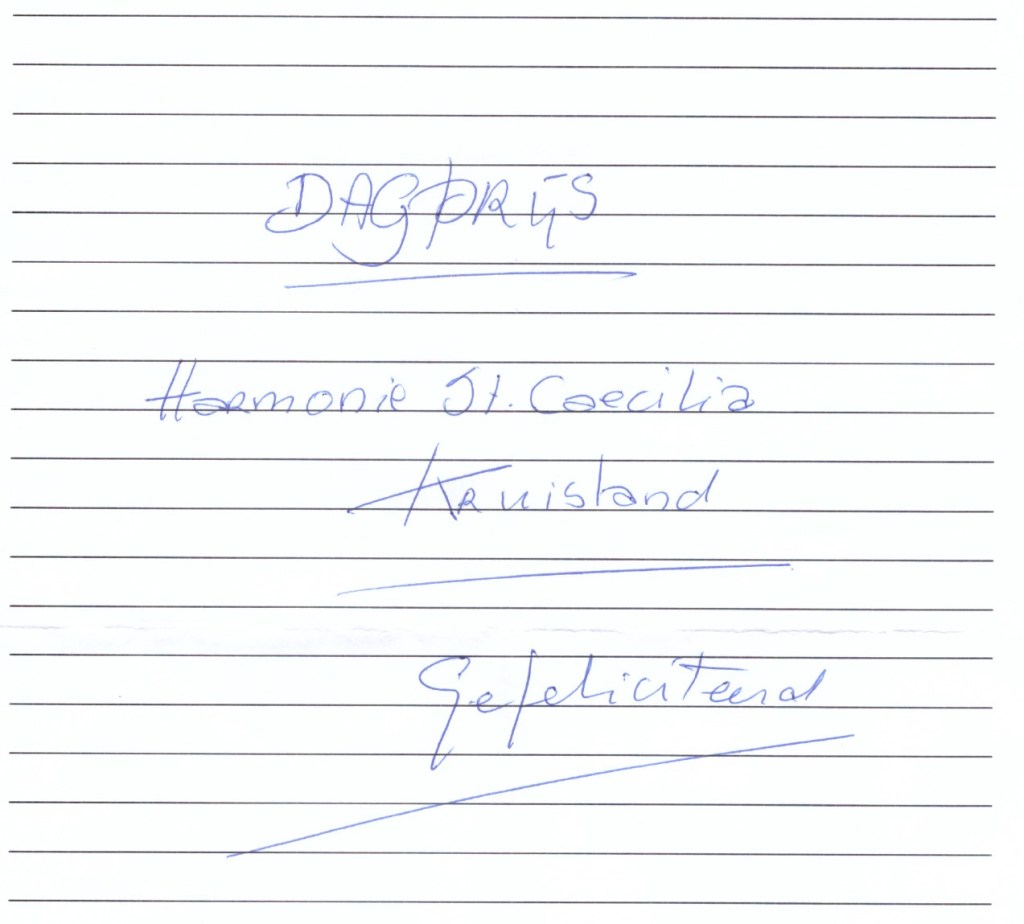 DAGPRIJS
Harmonie St. Caecilia
Kruisland
Gefeliciteerd